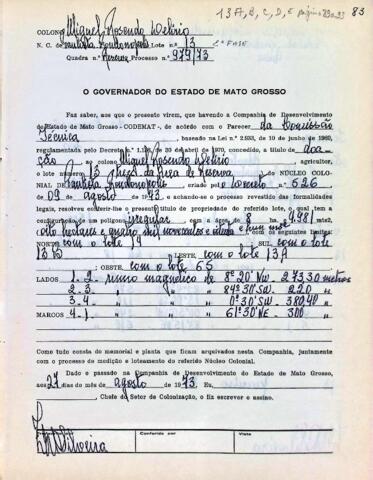 13 A, B, C, D, E página 83 a 93 83
COLONO Miguel Rosendo Delírio
N. C. de Paulista Rondonópolis Lote n.º 13 2.ª FASE
Quadra n.º Reserva Processo n.º 979/73
O GOVERNADOR DO ESTADO DE MATO GROSSO
Faz saber, aos que o presente virem, que havendo a Companhia de Desenvolvimento
do Estado de Mato Grosso - CODEMAT -, de acôrdo com o Parecer da Comissão
Técnica, baseado na Lei n.º 2.933, de 10 de junho de 1969,
regulamentada pelo Decreto n.º 1.138, de 20 de abril de 1970, concedido, a título de doa
ção ao colono Miguel Rosendo Delírio, agricultor,
o lote número 13 da Área de Reserva do NÚCLEO COLO-
NIAL DE Paulista Rondonópolis criado pelo Decreto n.º 526
de 09 de agosto de 1973, e achando-se o processo revestido das formalidades
legais, resolveu conferir-lhe o presente título de propriedade do referido lote, o qual tem a
configuração de um polígono irregular com a área de 8 hs. 4.981 mts2,
oito hectares e quatro mil novecentos e oitenta e hum mts2 com os seguintes limites:
NORTE com o lote 14 SUL com o lote
13 B LESTE, com o lote 13 A
; OESTE, com o lote 65
LADOS 1-2 rumo magnético de 8º 20' NW - 273,30 metros
2-3 " " " 84º 30' SW - 220 "
3-4 " " " 0º 30' SW - 380,40 "
MARCOS 4-1 " " " 61º 30' NE - 300 "
Como tudo consta do memorial e planta que ficam arquivados nesta Companhia, juntamente
com o processo de medição e loteamento do referido Núcleo Colonial.
Dado e passado na Companhia de Desenvolvimento do Estado de Mato Grosso,
aos 27 dias do mês de agosto de 1973. Eu,
, Chefe do Setor de Colonização, o fiz escrever e assino.
Conferido por Visto
Silveira